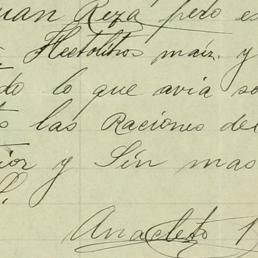 uan Reza pero es
Hectolitros maiz. y
do lo que avia so
s las Raciones del
ior y Sin mas
Anacleto